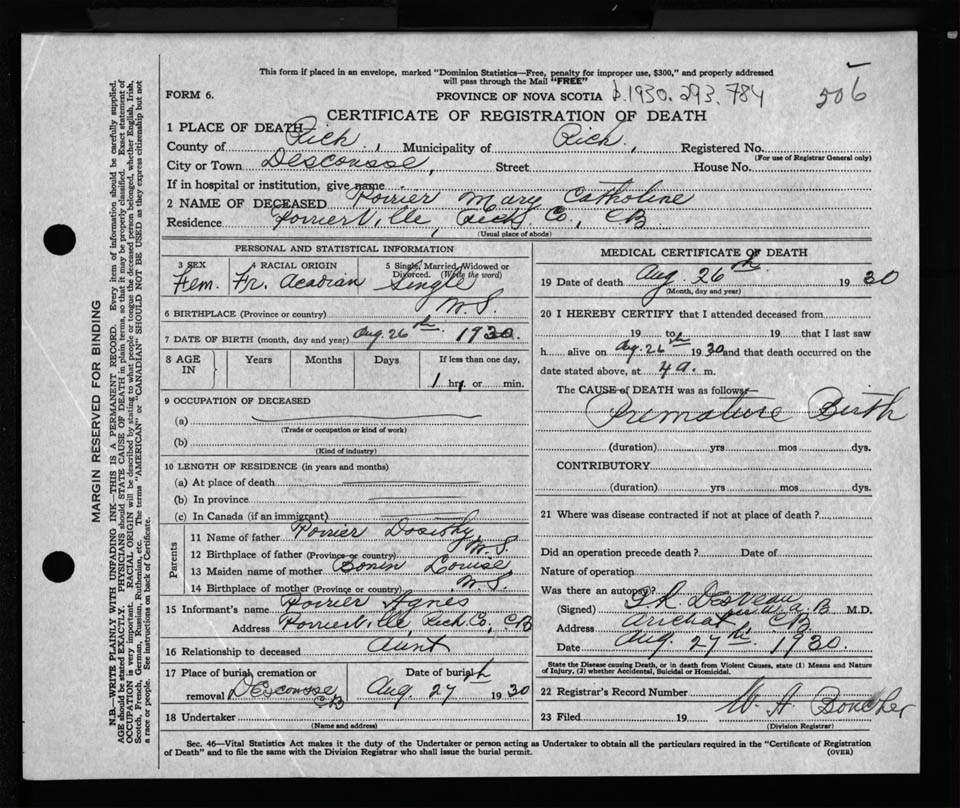 This form if placed in an envelope, marked "Dominion Statistics—Free, penalty for improper use, $300," and properly addressed
will pass through the Mail "FREE"
FORM 6. PROVINCE OF NOVA SCOTIA b.1930. 293. 784 206
CERTIFICATE OF REGISTRATION OF DEATH
1 PLACE OF DEATH
County of Rich , Municipality of Rich , Registered No.
(For use of Registrar General only)
City or Town Descousse Street House No.
If in hospital or institution, give name
2 NAME OF DECEASED Poirier Mary Catholine
Residence Poirierville, Rich. Co., CB
(Usual place of abode)
PERSONAL AND STATISTICAL INFORMATION
3 SEX 4 RACIAL ORIGIN 5 Single, Married, Widowed or Divorced. (Write the word)
Fem. Fr. Acadian Single
6 BIRTHPLACE (Province or country) N.S.
7 DATE OF BIRTH (month, day and year) Aug. 26th 1930.
8 AGE IN Years Months Days If less than one day,
1 hrs. or min.
9 OCCUPATION OF DECEASED
(a)
(Trade or occupation or kind of work)
(b)
(Kind of industry)
10 LENGTH OF RESIDENCE (in years and months)
(a) At place of death
(b) In province
(c) In Canada (if an immigrant)
Parents
11 Name of father Poirier Dosithy
12 Birthplace of father (Province or country) N.S.
13 Maiden name of mother Bonin Louise
14 Birthplace of mother (Province or country) N.S.
15 Informant's name Poirier Agnes
Address Poirierville, Rich. Co., CB
16 Relationship to deceased Aunt
17 Place of burial, cremation or removal Descousse CB Date of burial Aug 27th 1930
18 Undertaker
(Name and address)
MEDICAL CERTIFICATE OF DEATH
19 Date of death Aug 26th 1930
(Month, day and year)
20 I HEREBY CERTIFY that I attended deceased from
19 to 19 that I last saw
h alive on Aug. 26th 1930 and that death occurred on the
date stated above, at 4 a. m.
The CAUSE of DEATH was as follows:—
Premature Birth
(duration) yrs mos dys.
CONTRIBUTORY
(duration) yrs mos dys.
21 Where was disease contracted if not at place of death?
Did an operation precede death? Date of
Nature of operation
Was there an autopsy?
(Signed) Desveau M.D.
Address Arichat CB
Date Aug 27th 1930
State the Disease causing Death, or in death from Violent Causes, state (1) Means and Nature
of Injury, (2) whether Accidental, Suicidal or Homicidal.
22 Registrar's Record Number
23 Filed 19 W. A. Boucher
(Division Registrar)
Sec. 46—Vital Statistics Act makes it the duty of the Undertaker or person acting as Undertaker to obtain all the particulars required in the "Certificate of Registration
of Death" and to file the same with the Division Registrar who shall issue the burial permit. (OVER)
MARGIN RESERVED FOR BINDING
N.B.—WRITE PLAINLY WITH UNFADING INK—THIS IS A PERMANENT RECORD. Every item of information should be carefully supplied.
AGE should be stated EXACTLY. PHYSICIANS should STATE CAUSE OF DEATH in plain terms, so that it may be properly classified. Exact statement of
OCCUPATION is very important. RACIAL ORIGIN will be described by stating to what people or tongue the deceased person belonged, whether English, Irish,
Scotch, French, German, Russian, Ruthenian, etc. The terms "AMERICAN" or "CANADIAN" SHOULD NOT BE USED as they express citizenship but not
a race or people. See instructions on back of Certificate.